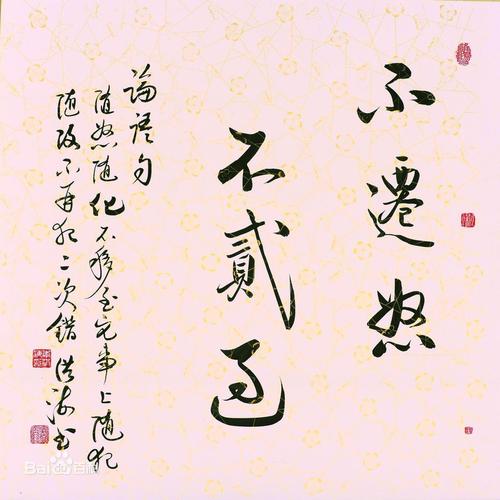 不遷怒
不貳過
論語句
随怒随化不移至它事上随犯
随改不再犯二次錯 洪海书
Bai百科